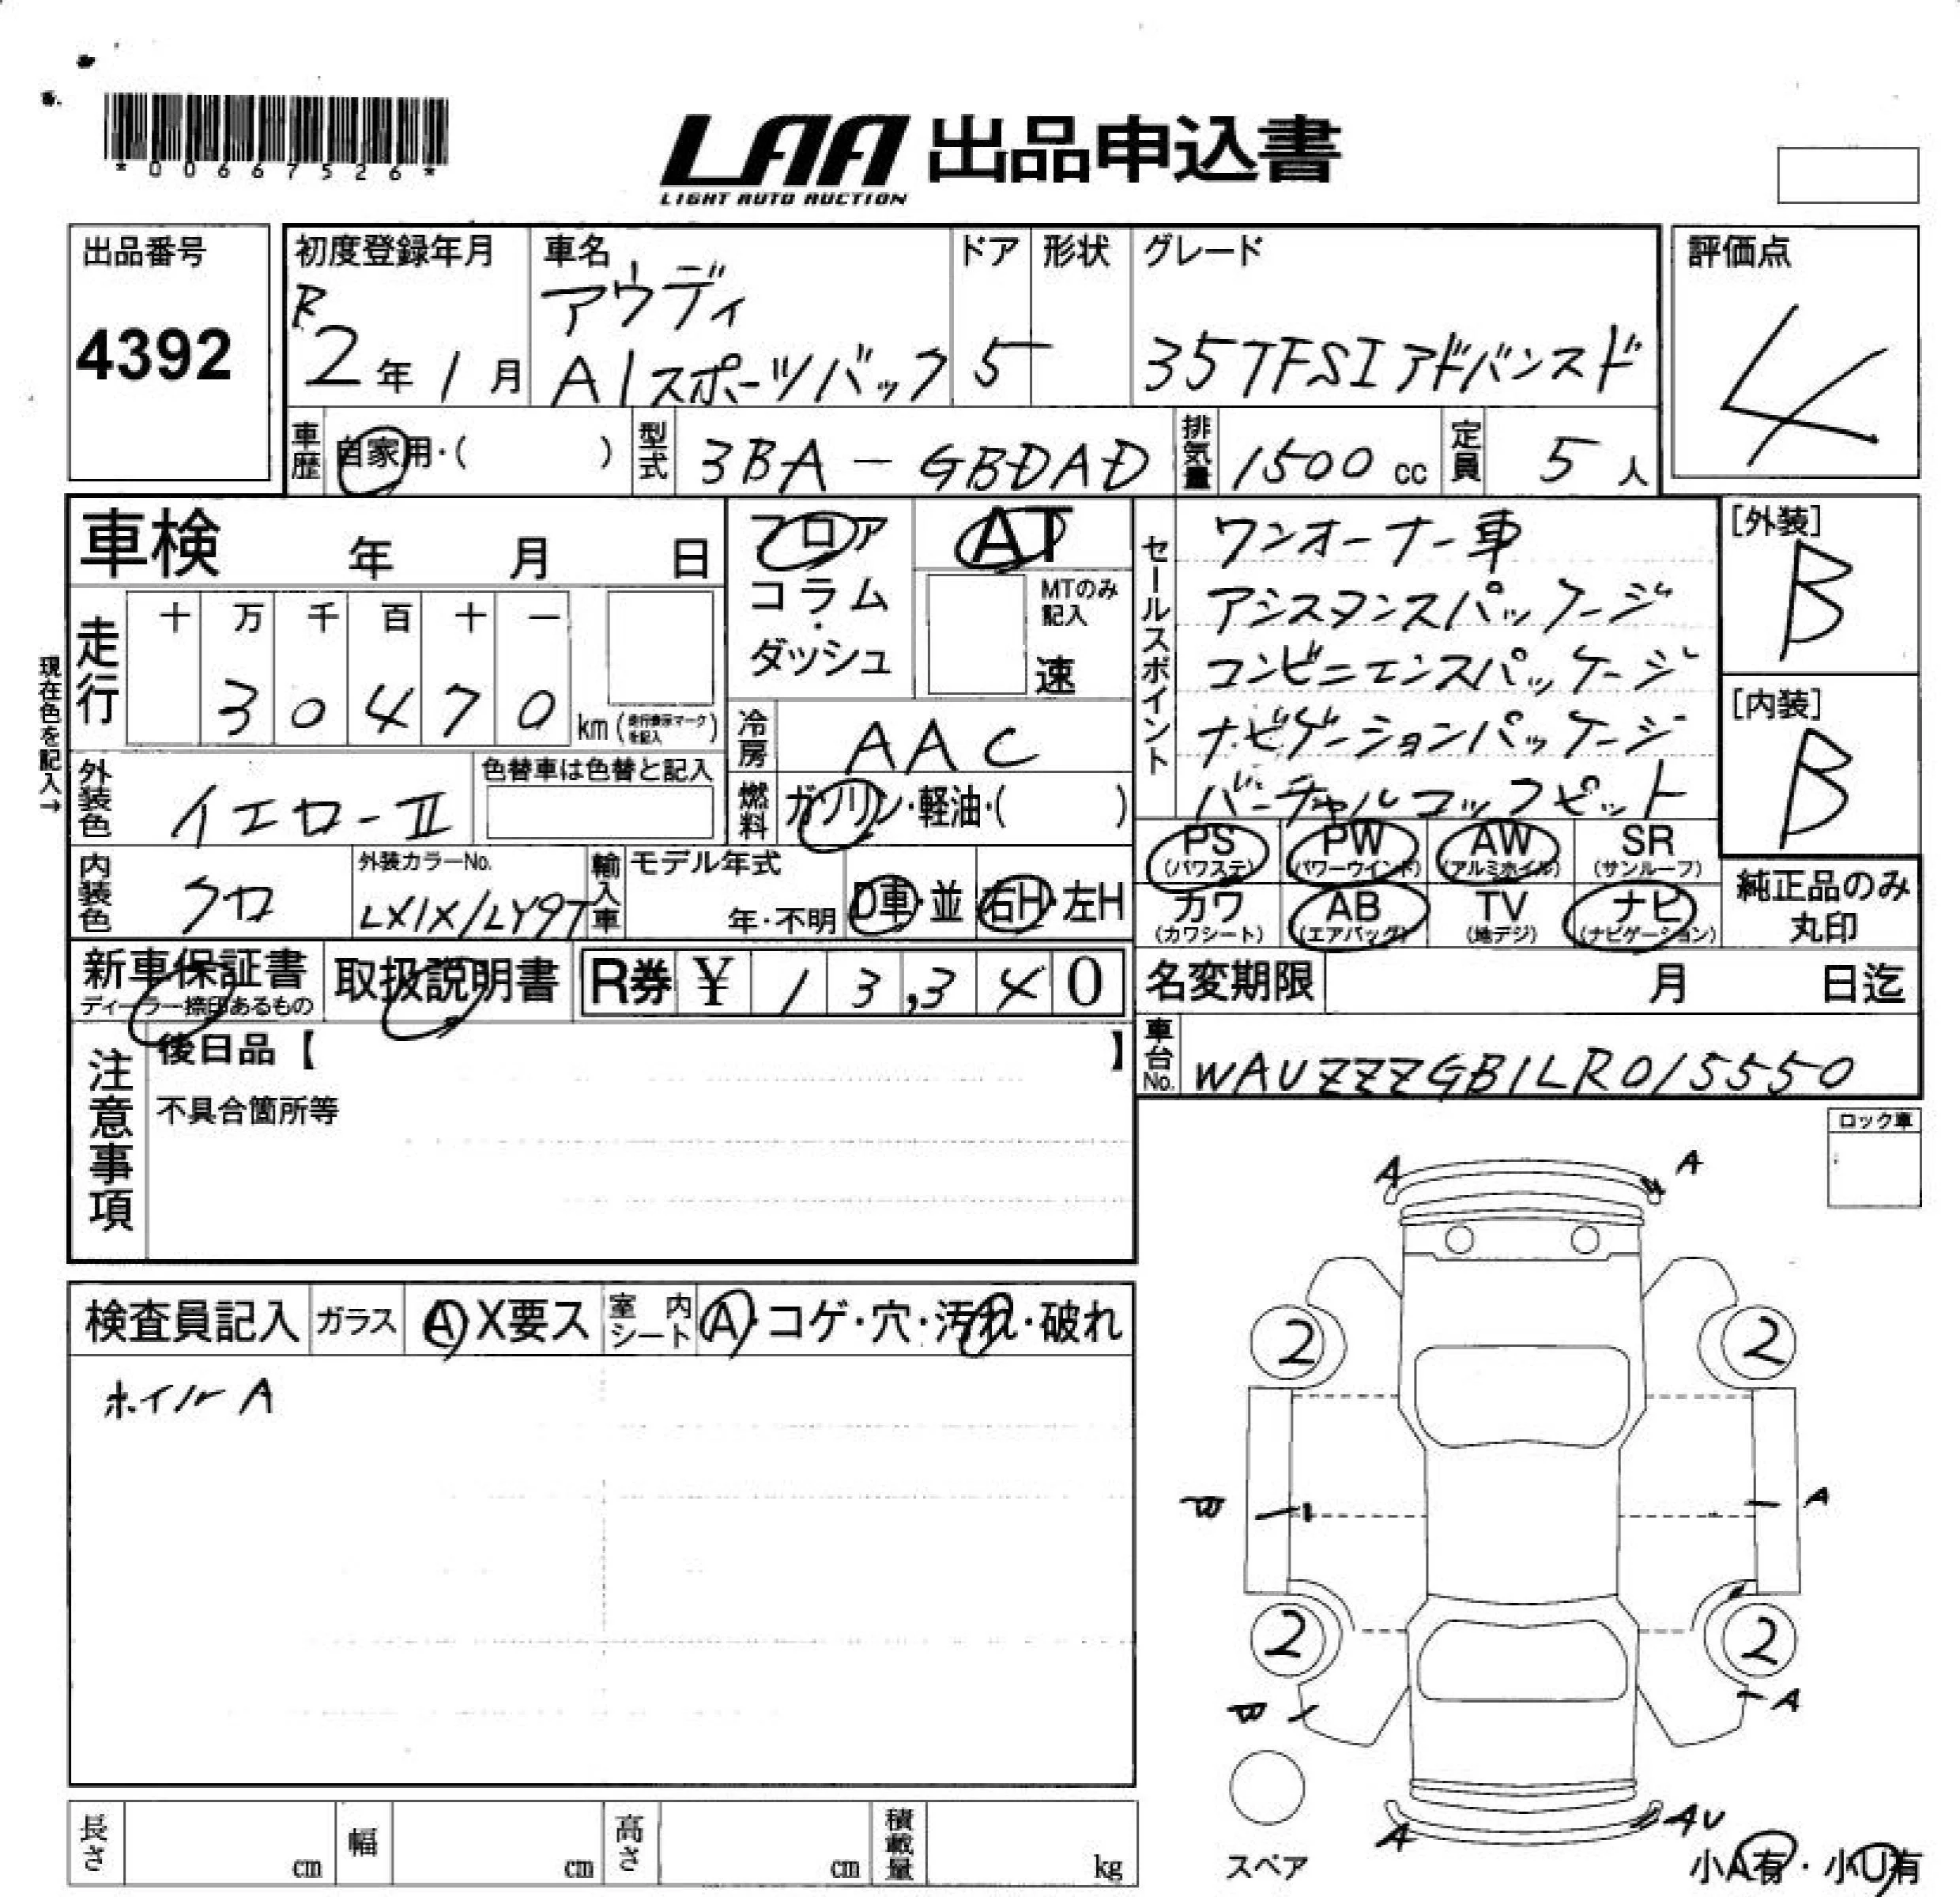 *00667526*
LAA 出品申込書
LIGHT AUTO AUCTION
出品番号
4392
初度登録年月
R
2年1月
車名
アウディ
A1スポーツバック
ドア
5
形状
グレード
35TFSIアドバンスド
評価点
4
車歴
自家用・( )
型式
3BA-GBDAD
排気量
1500 cc
定員
5人
車検 年 月 日
フロア
コラム
・
ダッシュ
AT
MTのみ記入
速
セールスポイント
ワンオーナー車
アシスタンスパッケージ
コンビニエンスパッケージ
ナビゲーションパッケージ
バーチャルコックピット
[外装]
B
[内装]
B
現在色を記入→
走行
十 万 千 百 十 一
3 0 4 7 0
km (走行表示マークを記入)
冷房
AAC
外装色
イエローII
色替車は色替と記入
燃料
ガソリン・軽油・( )
PS
(パワステ)
PW
(パワーウインド)
AW
(アルミホイル)
SR
(サンルーフ)
内装色
クロ
外装カラーNo.
LX1X/LY9T
輸入車
モデル年式
年・不明
D車・並
右H・左H
カワ
(カワシート)
AB
(エアバッグ)
TV
(地デジ)
ナビ
(ナビゲーション)
純正品のみ
丸印
新車保証書
ディーラー捺印あるもの
取扱説明書
R券 ¥ 1 3,3 4 0
名変期限 月 日迄
注意事項
後日品【 】
不具合箇所等
車台No.
WAUZZZGB1LR015550
ロック車
検査員記入
ガラス
A X要ス
室内シート
A・コゲ・穴・汚れ・破れ
ホイルA
A
A
2
2
A
2
2
A
A
AU
スペア
小A有・小U有
長さ cm
幅 cm
高さ cm
積載量 kg